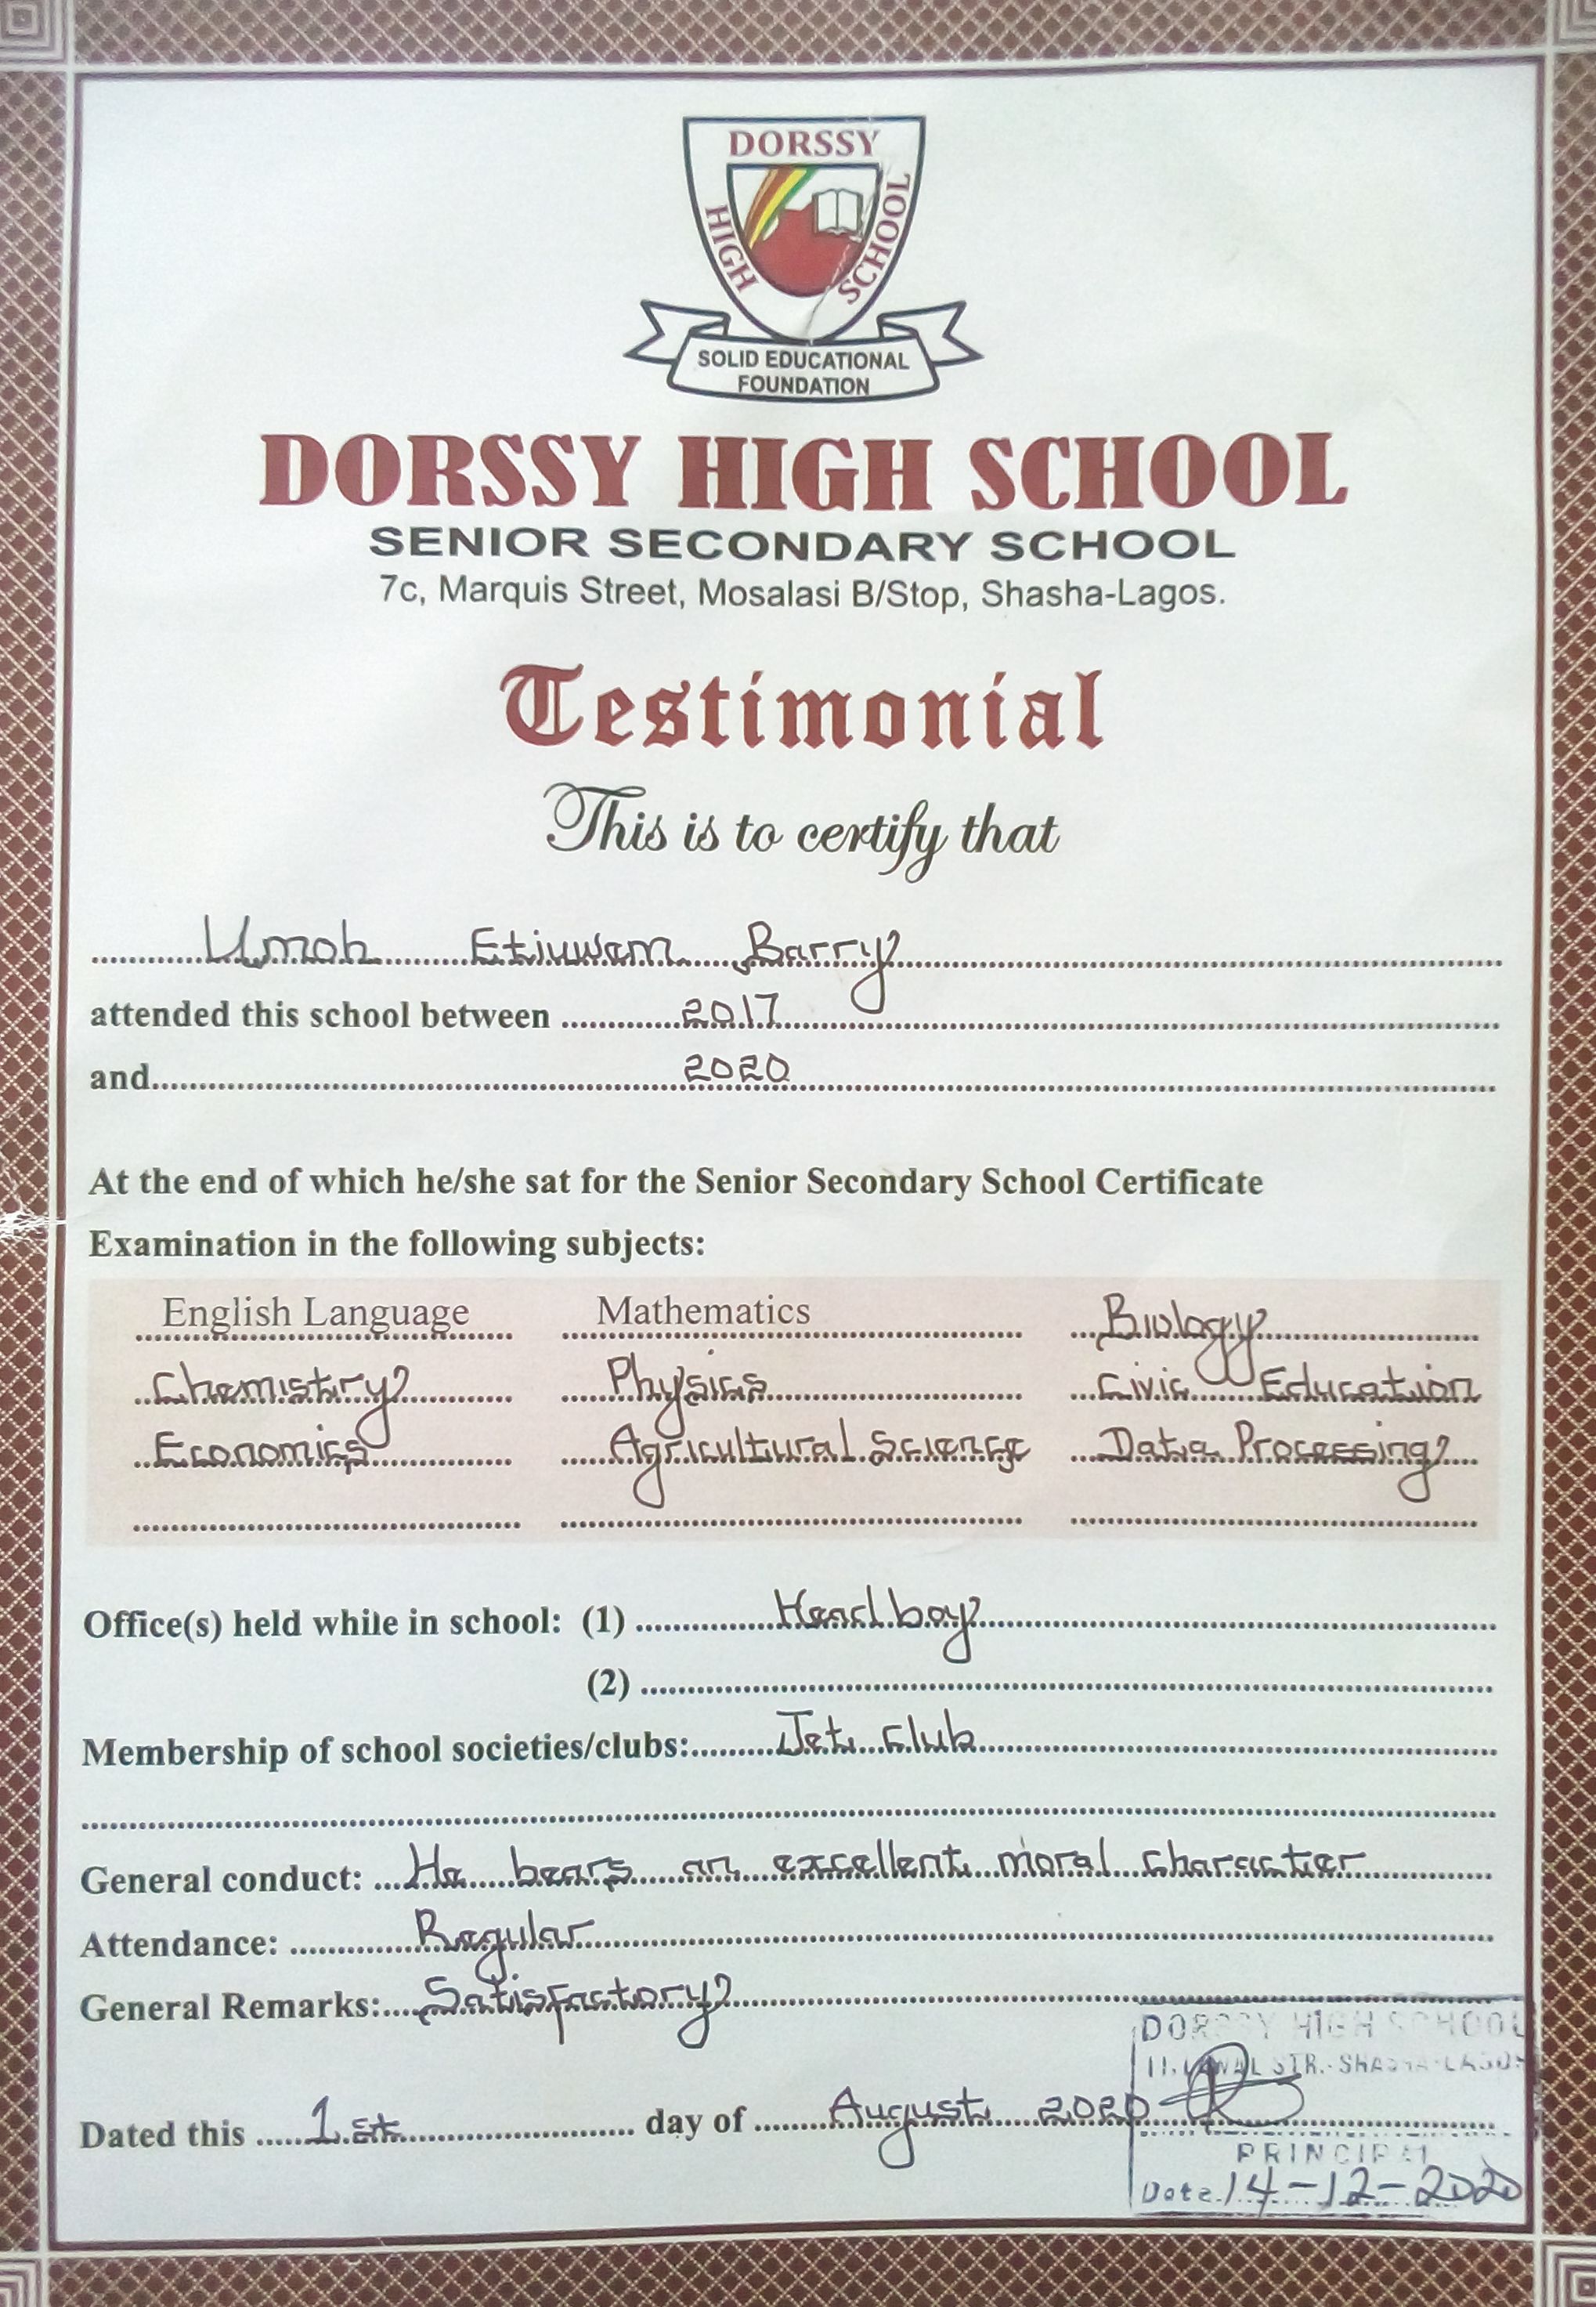 DORSSY
HIGH SCHOOL
SOLID EDUCATIONAL
FOUNDATION
DORSSY HIGH SCHOOL
SENIOR SECONDARY SCHOOL
7c, Marquis Street, Mosalasi B/Stop, Shasha-Lagos.
Testimonial
This is to certify that
Umoh Etiuwem Barry
attended this school between 2017
and 2020
At the end of which he/she sat for the Senior Secondary School Certificate
Examination in the following subjects:
English Language Mathematics Biology
Chemistry Physics Civic Education
Economics Agricultural Science Data Processing
Office(s) held while in school: (1) Head boy
(2)
Membership of school societies/clubs: Jet club
General conduct: He bears an excellent moral character
Attendance: Regular
General Remarks: Satisfactory
DORSSY HIGH SCHOOL
11, LAWAL STR. SHASHA-LAGOS
Dated this 1st day of August 2020
PRINCIPAL
Date 14-12-2020